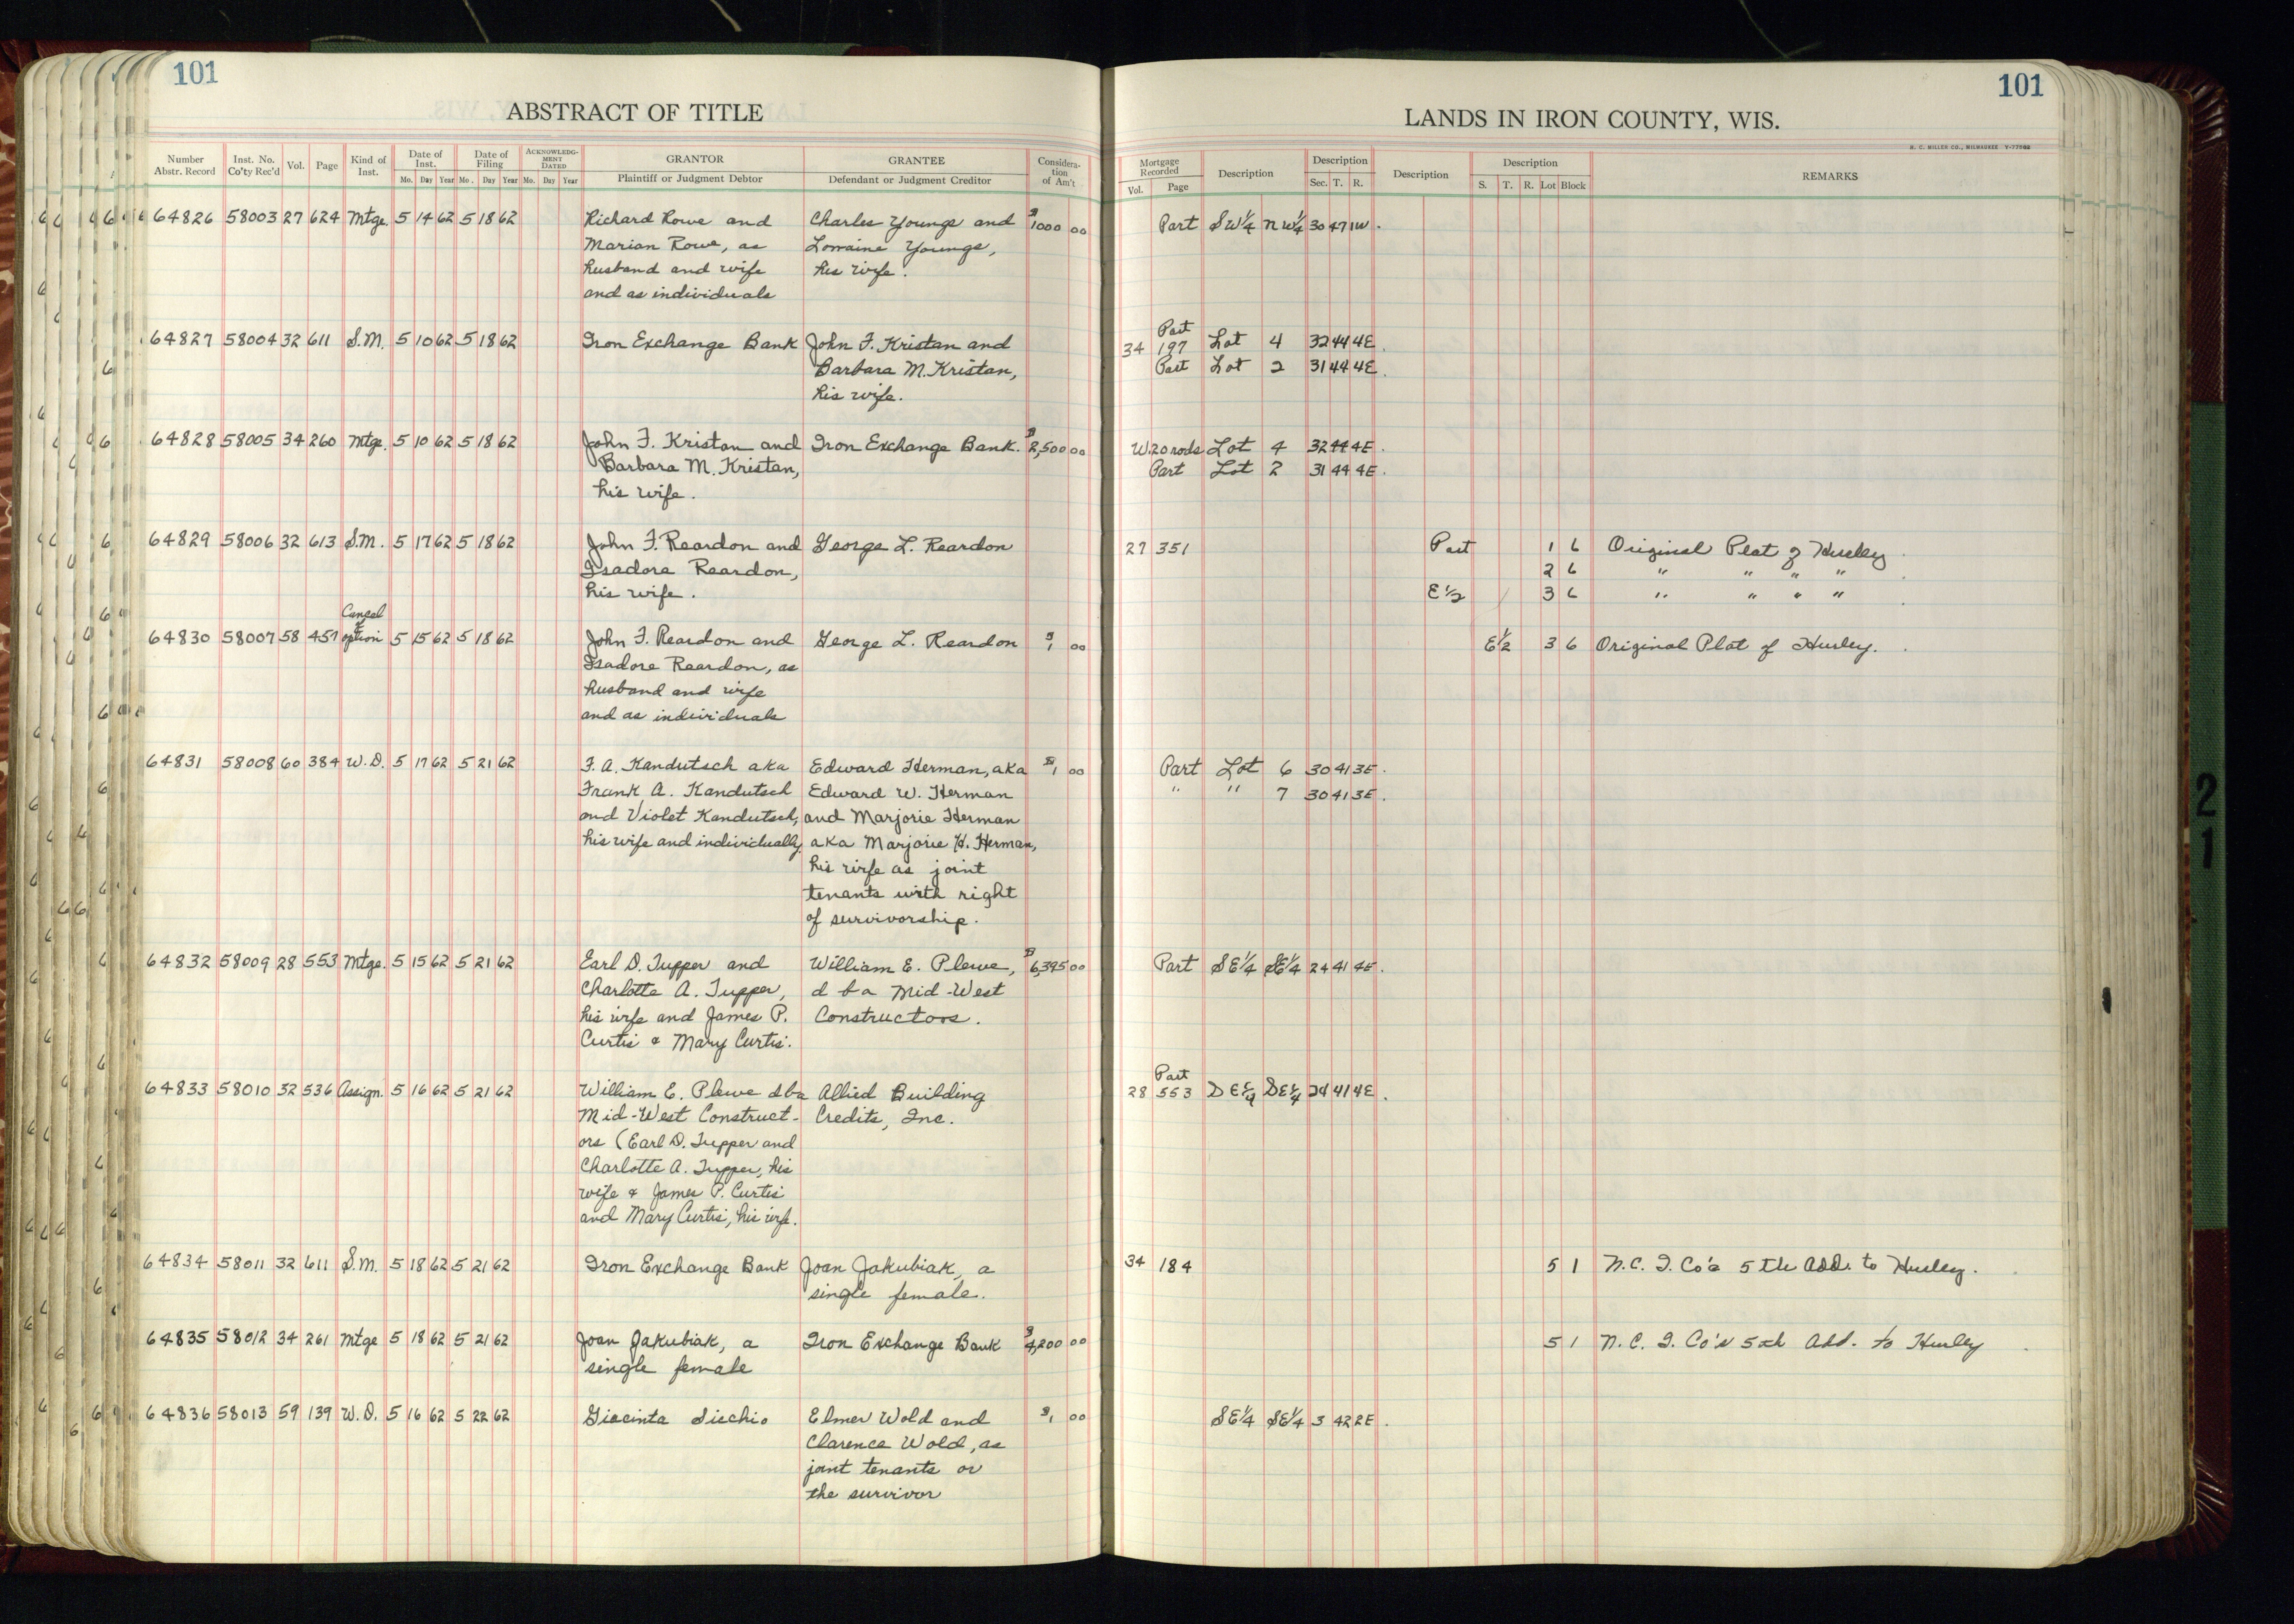 101
101
ABSTRACT OF TITLE
LANDS IN IRON COUNTY, WIS.
H. C. MILLER CO., MILWAUKEE
Number Abstr. Record Inst. No. Co'ty Rec'd Vol. Page Kind of Inst. Date of Inst. Mo. Day Year Date of Filing Mo. Day Year ACKNOWLEDGMENT DATED Mo. Day Year GRANTOR Plaintiff or Judgment Debtor GRANTEE Defendant or Judgment Creditor Consideration of Am't
Mortgage Recorded Vol. Page Description Description Sec. T. R. Description Description S. T. R. Lot Block REMARKS
64826 58003 27 624 Mtge. 5 14 62 5 18 62 Richard Rowe and Charles Youngs and $1000 00 Part SW1/4 NW1/4 30 47 1W.
Marian Rowe, as Lorraine Youngs,
husband and wife his wife.
and as individuals
Part
64827 58004 32 611 S.M. 5 10 62 5 18 62 Iron Exchange Bank John F. Kristan and 34 197 Lot 4 32 44 4E.
Barbara M. Kristan, Part Lot 2 31 44 4E.
his wife.
64828 58005 34 260 Mtge. 5 10 62 5 18 62 John F. Kristan and Iron Exchange Bank. $2,500 00 W.20 rods Lot 4 32 44 4E.
Barbara M. Kristan, Part Lot 2 31 44 4E.
his wife.
64829 58006 32 613 S.M. 5 17 62 5 18 62 John F. Reardon and George L. Reardon 27 351 Part 1 6 Original Plat of Hurley
Isadore Reardon, 2 6 " " " "
his wife. E 1/2 3 6 " " " "
Cancel of
64830 58007 58 457 option 5 15 62 5 18 62 John F. Reardon and George L. Reardon $1 00 E1/2 3 6 Original Plat of Hurley.
Isadore Reardon, as
husband and wife
and as individuals
64831 58008 60 384 W.D. 5 17 62 5 21 62 F. A. Kandutsch aka Edward Herman, aka $1 00 Part Lot 6 30 41 3E.
Frank A. Kandutsch Edward W. Herman " " 7 30 41 3E.
and Violet Kandutsch, and Marjorie Herman
his wife and individually. aka Marjorie H. Herman,
his wife as joint
tenants with right
of survivorship.
64832 58009 28 553 Mtge. 5 15 62 5 21 62 Earl D. Tupper and William E. Plewe, $6,395 00 Part SE1/4 SE1/4 24 41 4E.
Charlotte A. Tupper, d b a Mid-West
his wife and James P. Constructors.
Curtis & Mary Curtis.
Part
64833 58010 32 536 Assign. 5 16 62 5 21 62 William E. Plewe dba Allied Building 28 553 SE1/4 SE1/4 24 41 4E.
Mid-West Construct- Credits, Inc.
ors (Earl D. Tupper and
Charlotte A. Tupper, his
wife & James P. Curtis
and Mary Curtis, his wife.
64834 58011 32 611 S.M. 5 18 62 5 21 62 Iron Exchange Bank Joan Jakubiak, a 34 184 5 1 N.C. I. Co's 5th Add. to Hurley.
single female.
64835 58012 34 261 Mtge 5 18 62 5 21 62 Joan Jakubiak, a Iron Exchange Bank $4,200 00 5 1 N. C. I. Co's 5th Add. to Hurley
single female
64836 58013 59 139 W.D. 5 16 62 5 22 62 Giacinta Sicchio Elmer Wold and $1 00 SE1/4 SE1/4 3 42 2E.
Clarence Wold, as
joint tenants or
the survivor
21